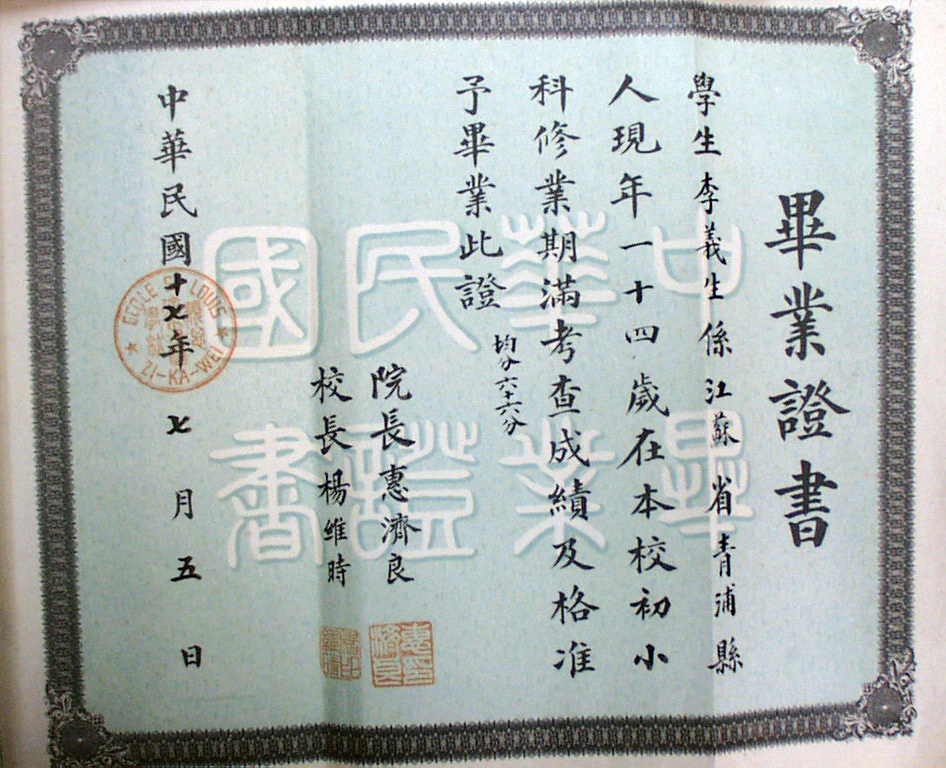 畢業證書
學生李義生係江蘇省青浦縣
人現年一十四歲在本校初小
科修業期滿考查成績及格准
予畢業此證
均分六十六分
院長惠濟良
校長楊維時
中華民國十七年七月五日
中華民國
畢業證書
ECOLE ST LOUIS
ZI-KA-WEI
惠濟良